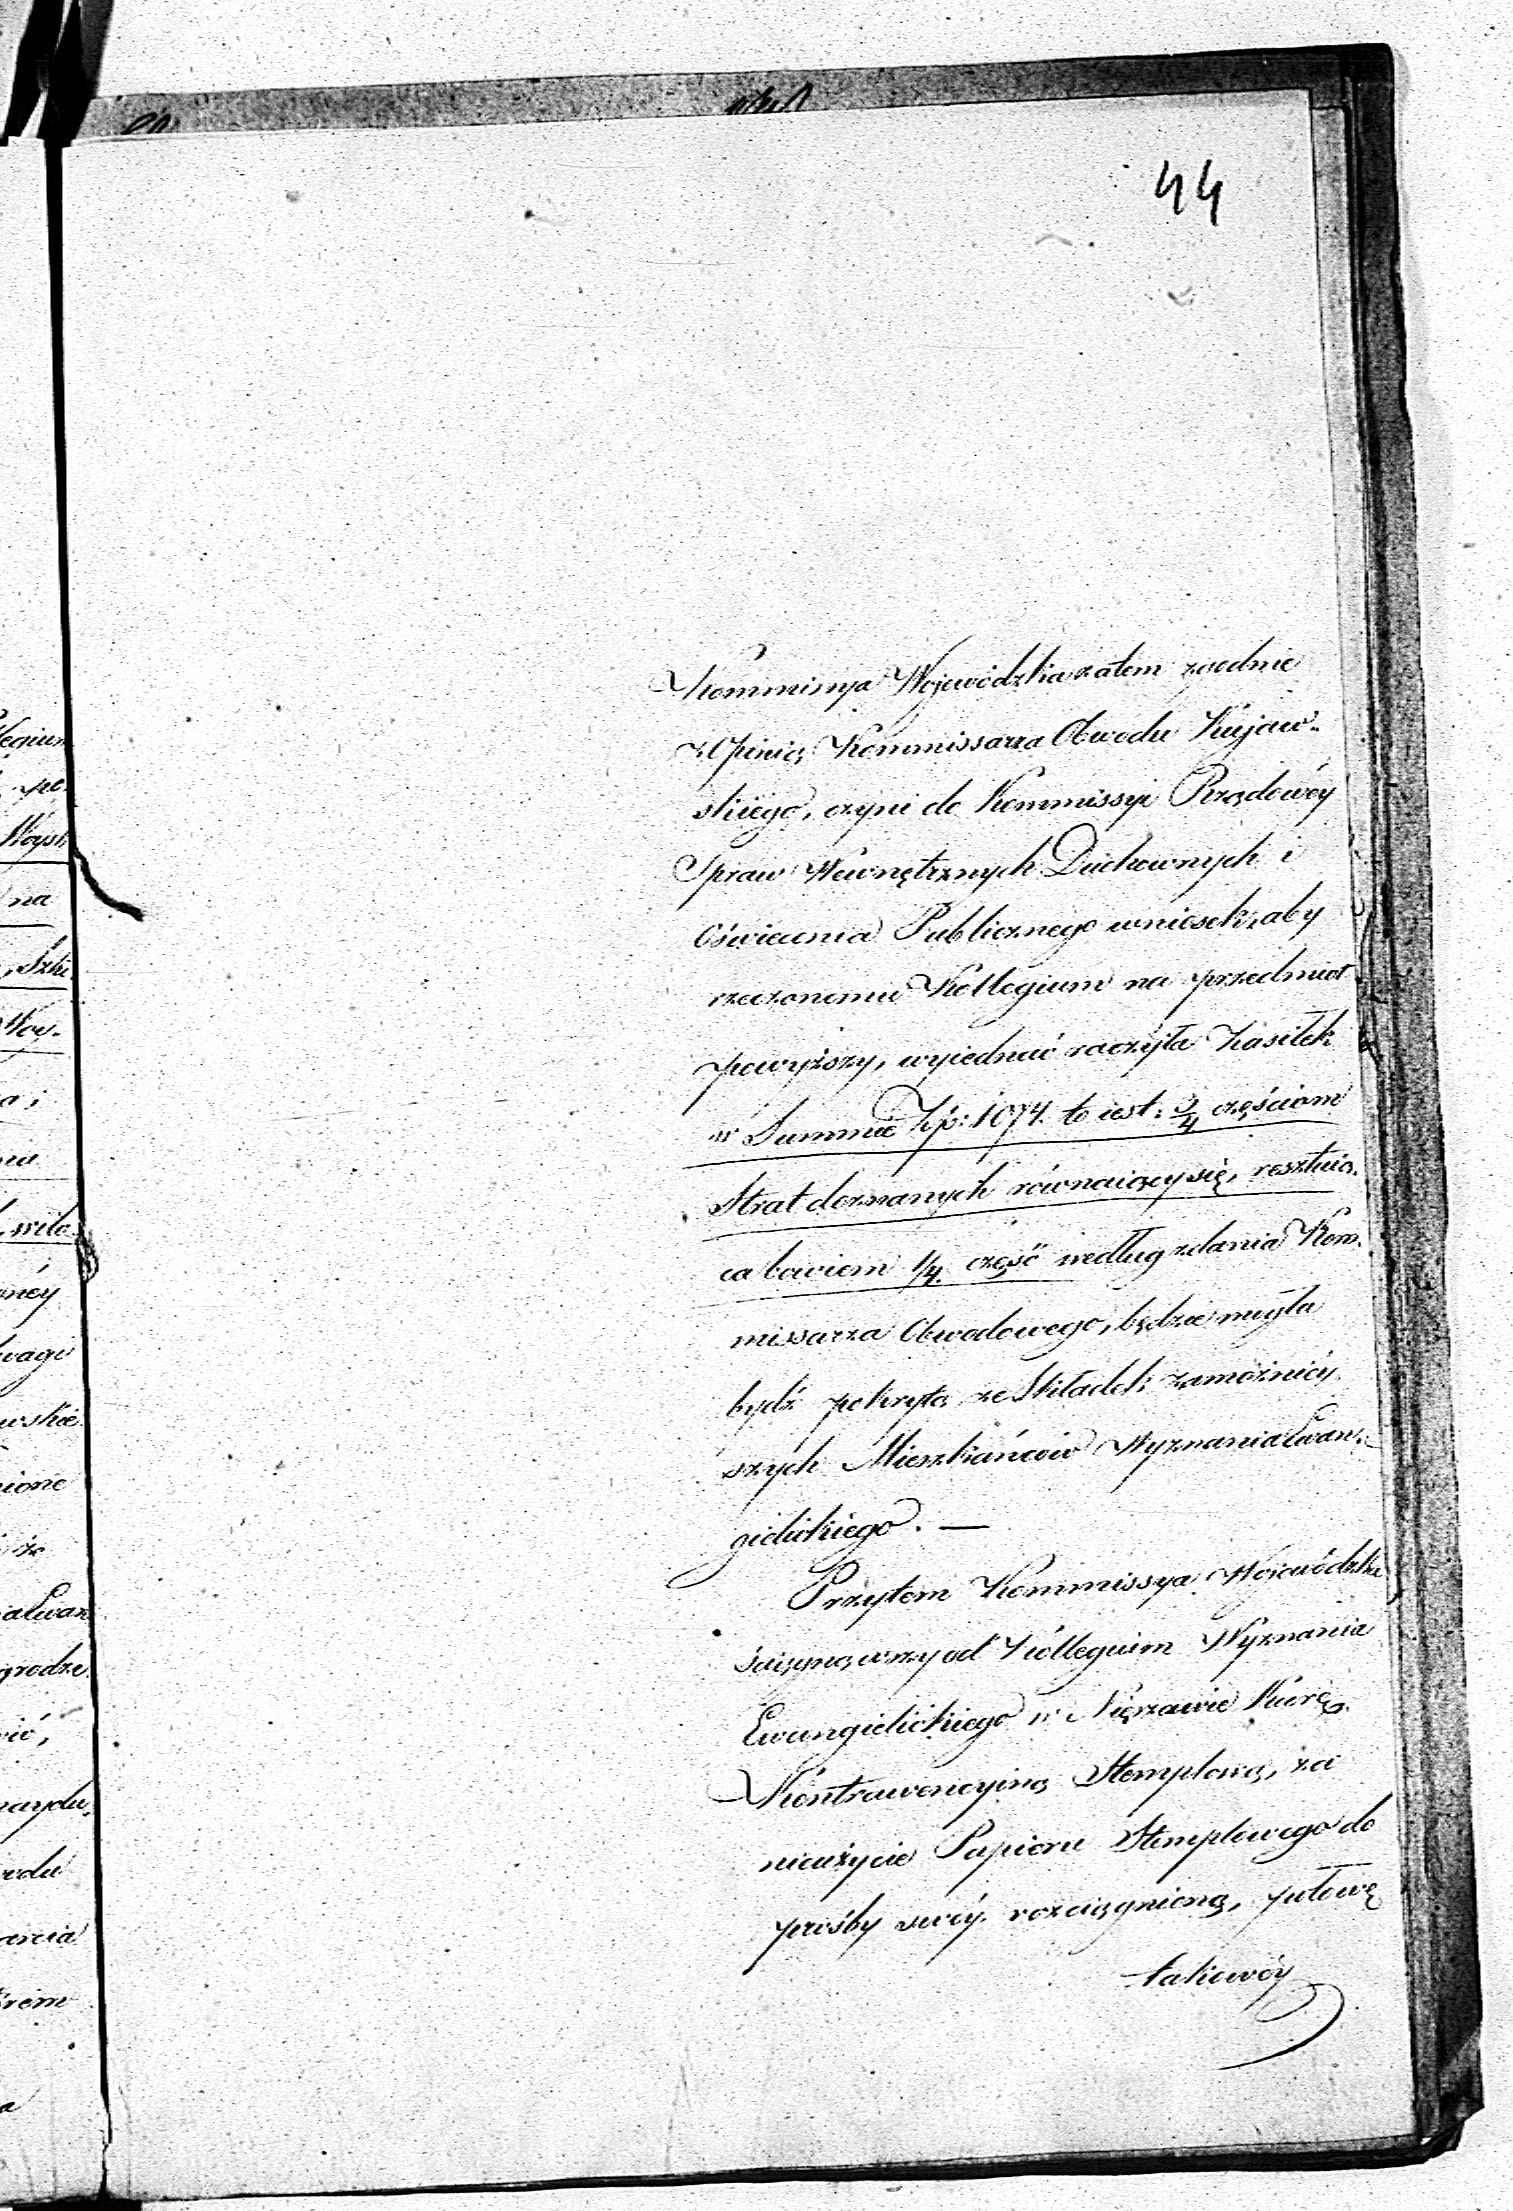 44
Kommissya Wojewódzka zatem zgodnie
z Opinią Kommissarza Obwodu Kujaw-
skiego, czyni do Kommissyi Rządowéy
Spraw Wewnętrznych Duchownych i
Oświecenia Publicznego wniosek, aby
rzeczonemu Kollegium na przedmiot
powyższy, wyiednać raczyła Zasiłek
w Summie Złp: 1074. to iest: 3/4 częściom
Strat doznanych równaiący się, resztuią-
ca bowiem 1/4. część według zdania Kom-
missarza Obwodowego, będzie mogła
bydź pokrytą ze Składek zamożniéy-
szych Mieszkańców Wyznania Ewan-
gielickiego. —
Przytem Kommissya Wojewódzka
ściągnąwszy od Kollegium Wyznania
Ewangielickiego w Nieszawie Karę
Kontrawencyiną Stemplową, za
nieużycie Papieru Stemplowego do
prośby swéy rozciągnioną, połowę
takowéy
legium
po-
Woysk
na
Szki-
Woy-
a;
na
wilo-
onéy
wagi
wskie
nione
że
ia Ewan
grodze
ić,
naydu-
odu
arcia